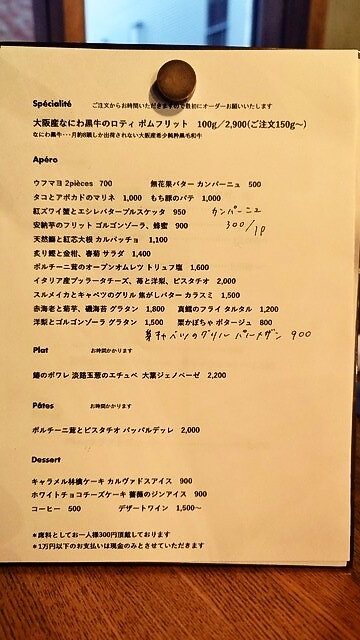 Spécialité　ご注文からお時間いただきますので最初にオーダーお願いいたします
大阪産なにわ黒牛のロティ ポムフリット　100g／2,900(ご注文150g〜)
なにわ黒牛・・・月約8頭しか出荷されない大阪産希少純粋黒毛和牛
Apéro
ウフマヨ 2pièces　700　無花果バター カンパーニュ　500
タコとアボカドのマリネ　1,000　もち豚のパテ　1,000
紅ズワイ蟹とエシレバターブルスケッタ　950　カンパーニュ
安納芋のフリット ゴルゴンゾーラ、蜂蜜　900　300/1P
天然鰤と紅芯大根 カルパッチョ　1,100
炙り鰹と金柑、春菊 サラダ　1,400
ポルチーニ茸のオープンオムレツ トリュフ塩　1,600
イタリア産ブッラータチーズ、苺と洋梨、ピスタチオ　2,000
スルメイカとキャベツのグリル 焦がしバター カラスミ　1,500
赤海老と菊芋、磯海苔 グラタン　1,800　真鯛のフライ タルタル　1,200
洋梨とゴルゴンゾーラ グラタン　1,500　栗かぼちゃ ポタージュ　800
芽キャベツのグリル パルメザン　900
Plat　お時間かかります
鰆のポワレ 淡路玉葱のエチュベ 大葉ジェノベーゼ　2,200
Pâtes　お時間かかります
ポルチーニ茸とピスタチオ パッパルデッレ　2,000
Dessert
キャラメル林檎ケーキ カルヴァドスアイス　900
ホワイトチョコチーズケーキ 薔薇のジンアイス　900
コーヒー　500　デザートワイン　1,500〜
＊席料としてお一人様300円頂戴しております
＊1万円以下のお支払いは現金のみとさせていただきます